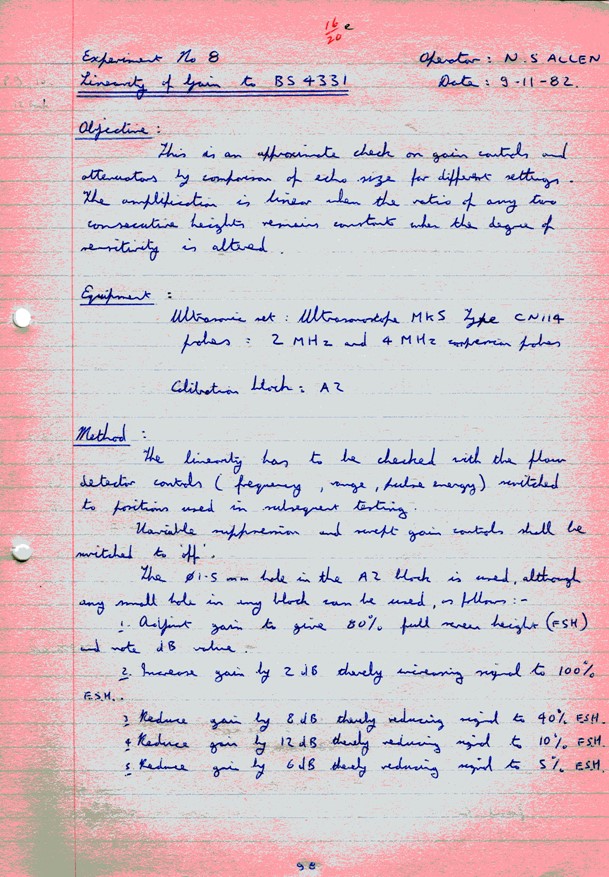 16/20 e
Experiment No 8 Operator : N. S ALLEN
Linearity of Gain to BS 4331 Date : 9-11-82.
Objective :
This is an approximate check on gain controls and
attenuators by comparison of echo size for different settings.
The amplification is linear when the ratio of any two
consecutive heights remains constant when the degree of
sensitivity is altered.
Equipment :
Ultrasonic set : Ultrasonoscope MK5 Type CN114
probes : 2 MHz and 4 MHz compression probes
Calibration block : A2
Method :
The linearity has to be checked with the flaw
detector controls ( frequency , range , pulse energy) switched
to positions used in subsequent testing.
Variable suppression and swept gain controls shall be
switched to 'off'.
The Ø1.5 mm hole in the A2 block is used, although
any small hole in any block can be used, as follows :-
1. Adjust gain to give 80% full screen height (FSH)
and note dB value.
2. Increase gain by 2 dB thereby increasing signal to 100%
F.S.H..
3 Reduce gain by 8 dB thereby reducing signal to 40% FSH.
4 Reduce gain by 12 dB thereby reducing signal to 10% FSH.
5 Reduce gain by 6 dB thereby reducing signal to 5% FSH.
98